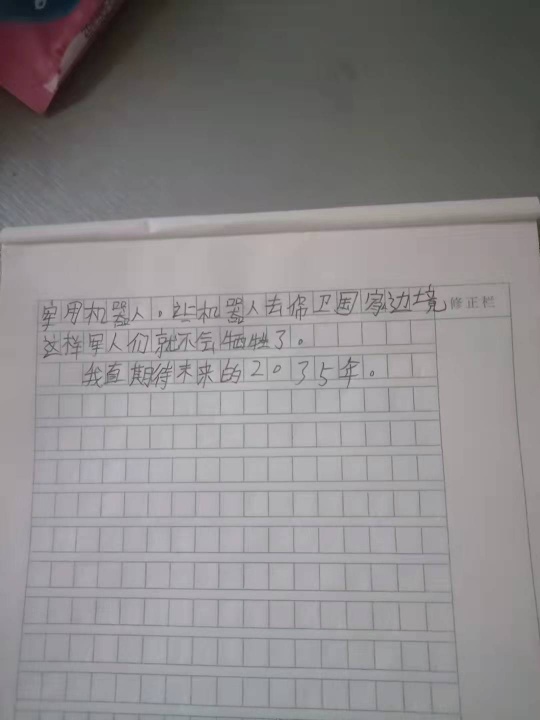 军用机器人。让机器人去保卫国家边境
修正栏
这样军人们就不会牺牲了。
我真期待未来的2035年。